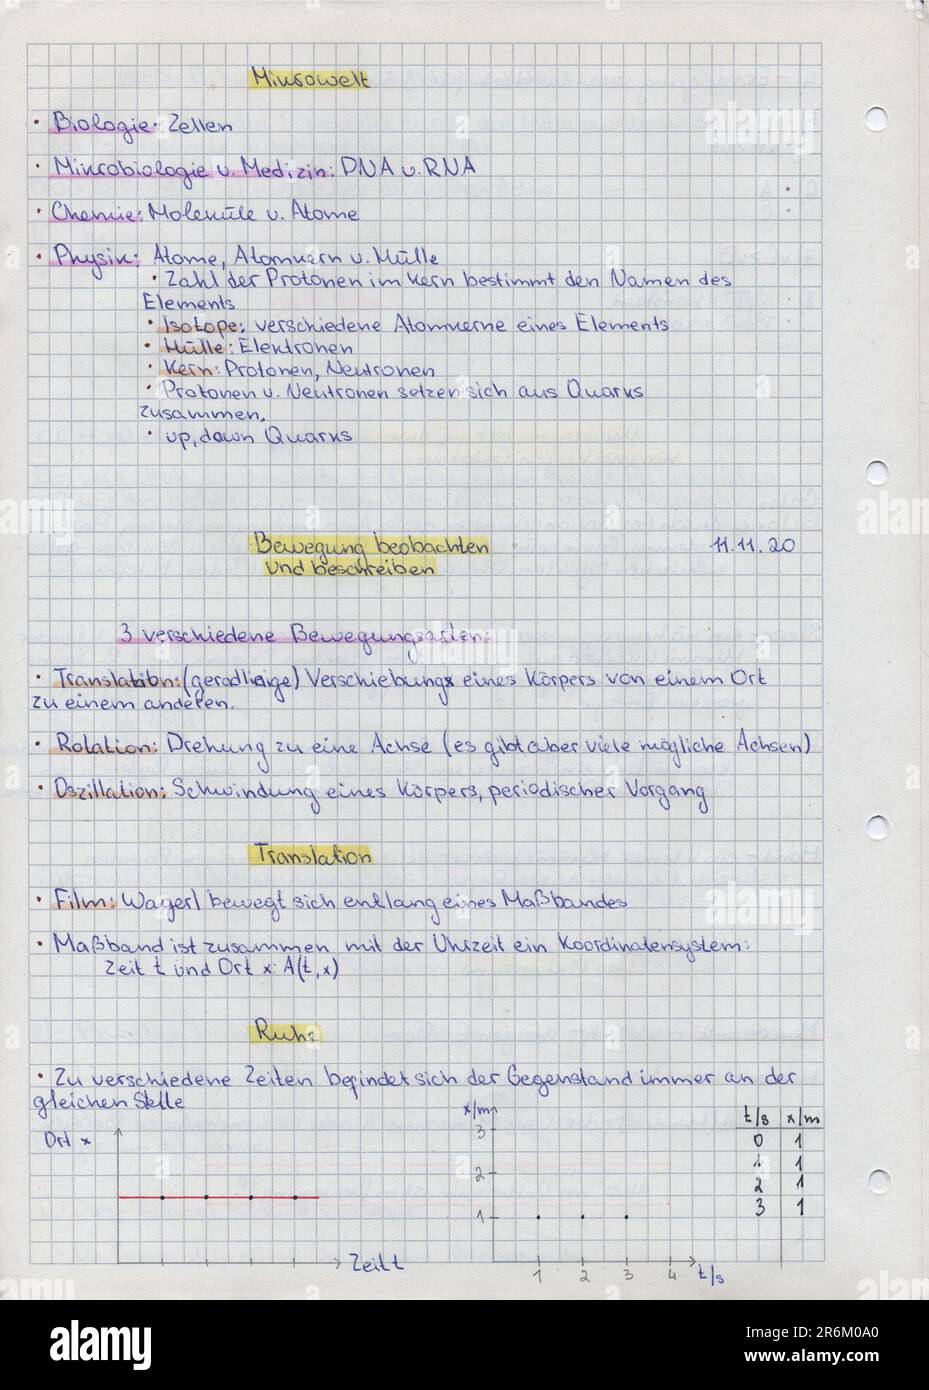 Mikrowelt
• Biologie: Zellen
• Mikrobiologie u. Medizin: DNA u. RNA
• Chemie: Moleküle u. Atome
• Physik: Atome, Atomkern u. Hülle
• Zahl der Protonen im Kern bestimmt den Namen des
Elements
• Isotope: verschiedene Atomkerne eines Elements
• Hülle: Elektronen
• Kern: Protonen, Neutronen
• Protonen u. Neutronen setzen sich aus Quarks
zusammen.
• up, down Quarks
Bewegung beobachten 11.11.20
und beschreiben
3 verschiedene Bewegungsarten:
• Translation: (geradlinige) Verschiebung eines Körpers von einem Ort
zu einem anderen.
• Rotation: Drehung zu eine Achse (es gibt aber viele mögliche Achsen)
• Oszillation: Schwindung eines Körpers, periodischer Vorgang
Translation
• Film: Wagerl bewegt sich entlang eines Maßbandes
• Maßband ist zusammen mit der Uhrzeit ein Koordinatensystem:
Zeit t und Ort x: A(t,x)
Ruhe
• Zu verschiedene Zeiten befindet sich der Gegenstand immer an der
gleichen Stelle
Ort x
Zeit t
x/m
3
2
1
1 2 3 4 t/s
t/s x/m
0 1
1 1
2 1
3 1
alamy
Image ID: 2R6M0A0
www.alamy.com